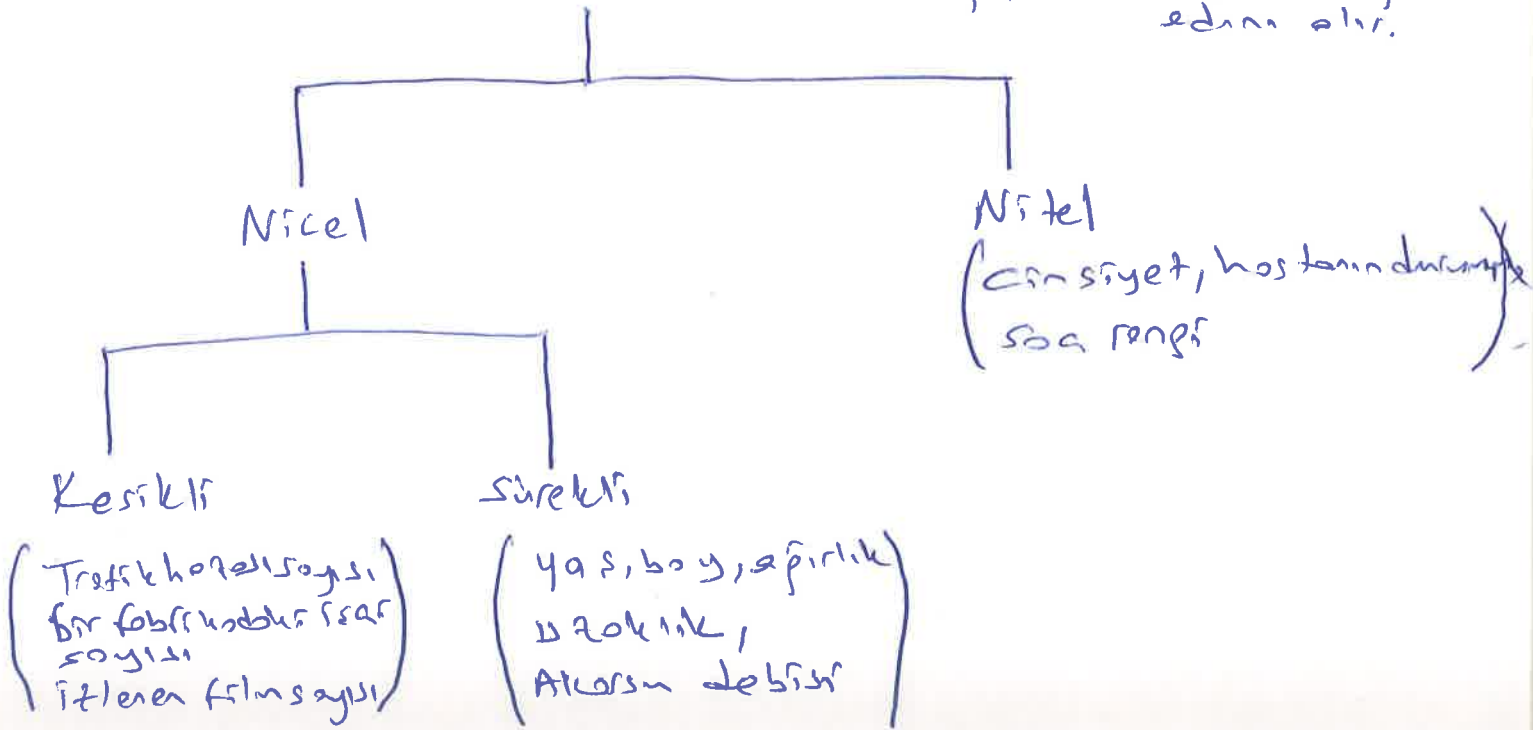 edını alır.
Nicel
Nitel
(cinsiyet, hastanın durumu,
saç rengi)
Kesikli
Sürekli
(Trafik kazası sayısı,
bir fabrikadaki işçi
sayısı
izlenen film sayısı)
(yaş, boy, ağırlık
uzaklık,
Akarsu debisi)